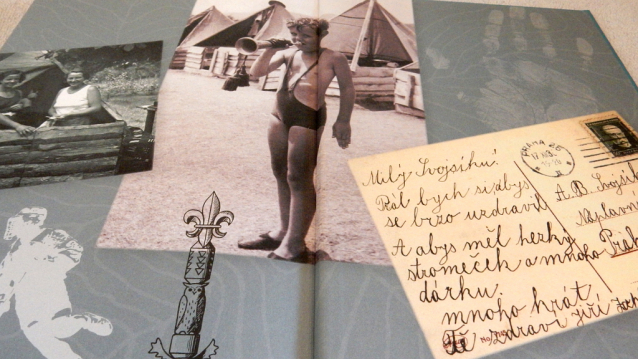 Milý Svojsíku!
Rád bych si abys
se brzo uzdravil
A abys měl hezky
stromeček a mnoho
dárku.
mnoho krát
Tě zdraví Jiří
PRAHA
A. B. Svojsík
Praha